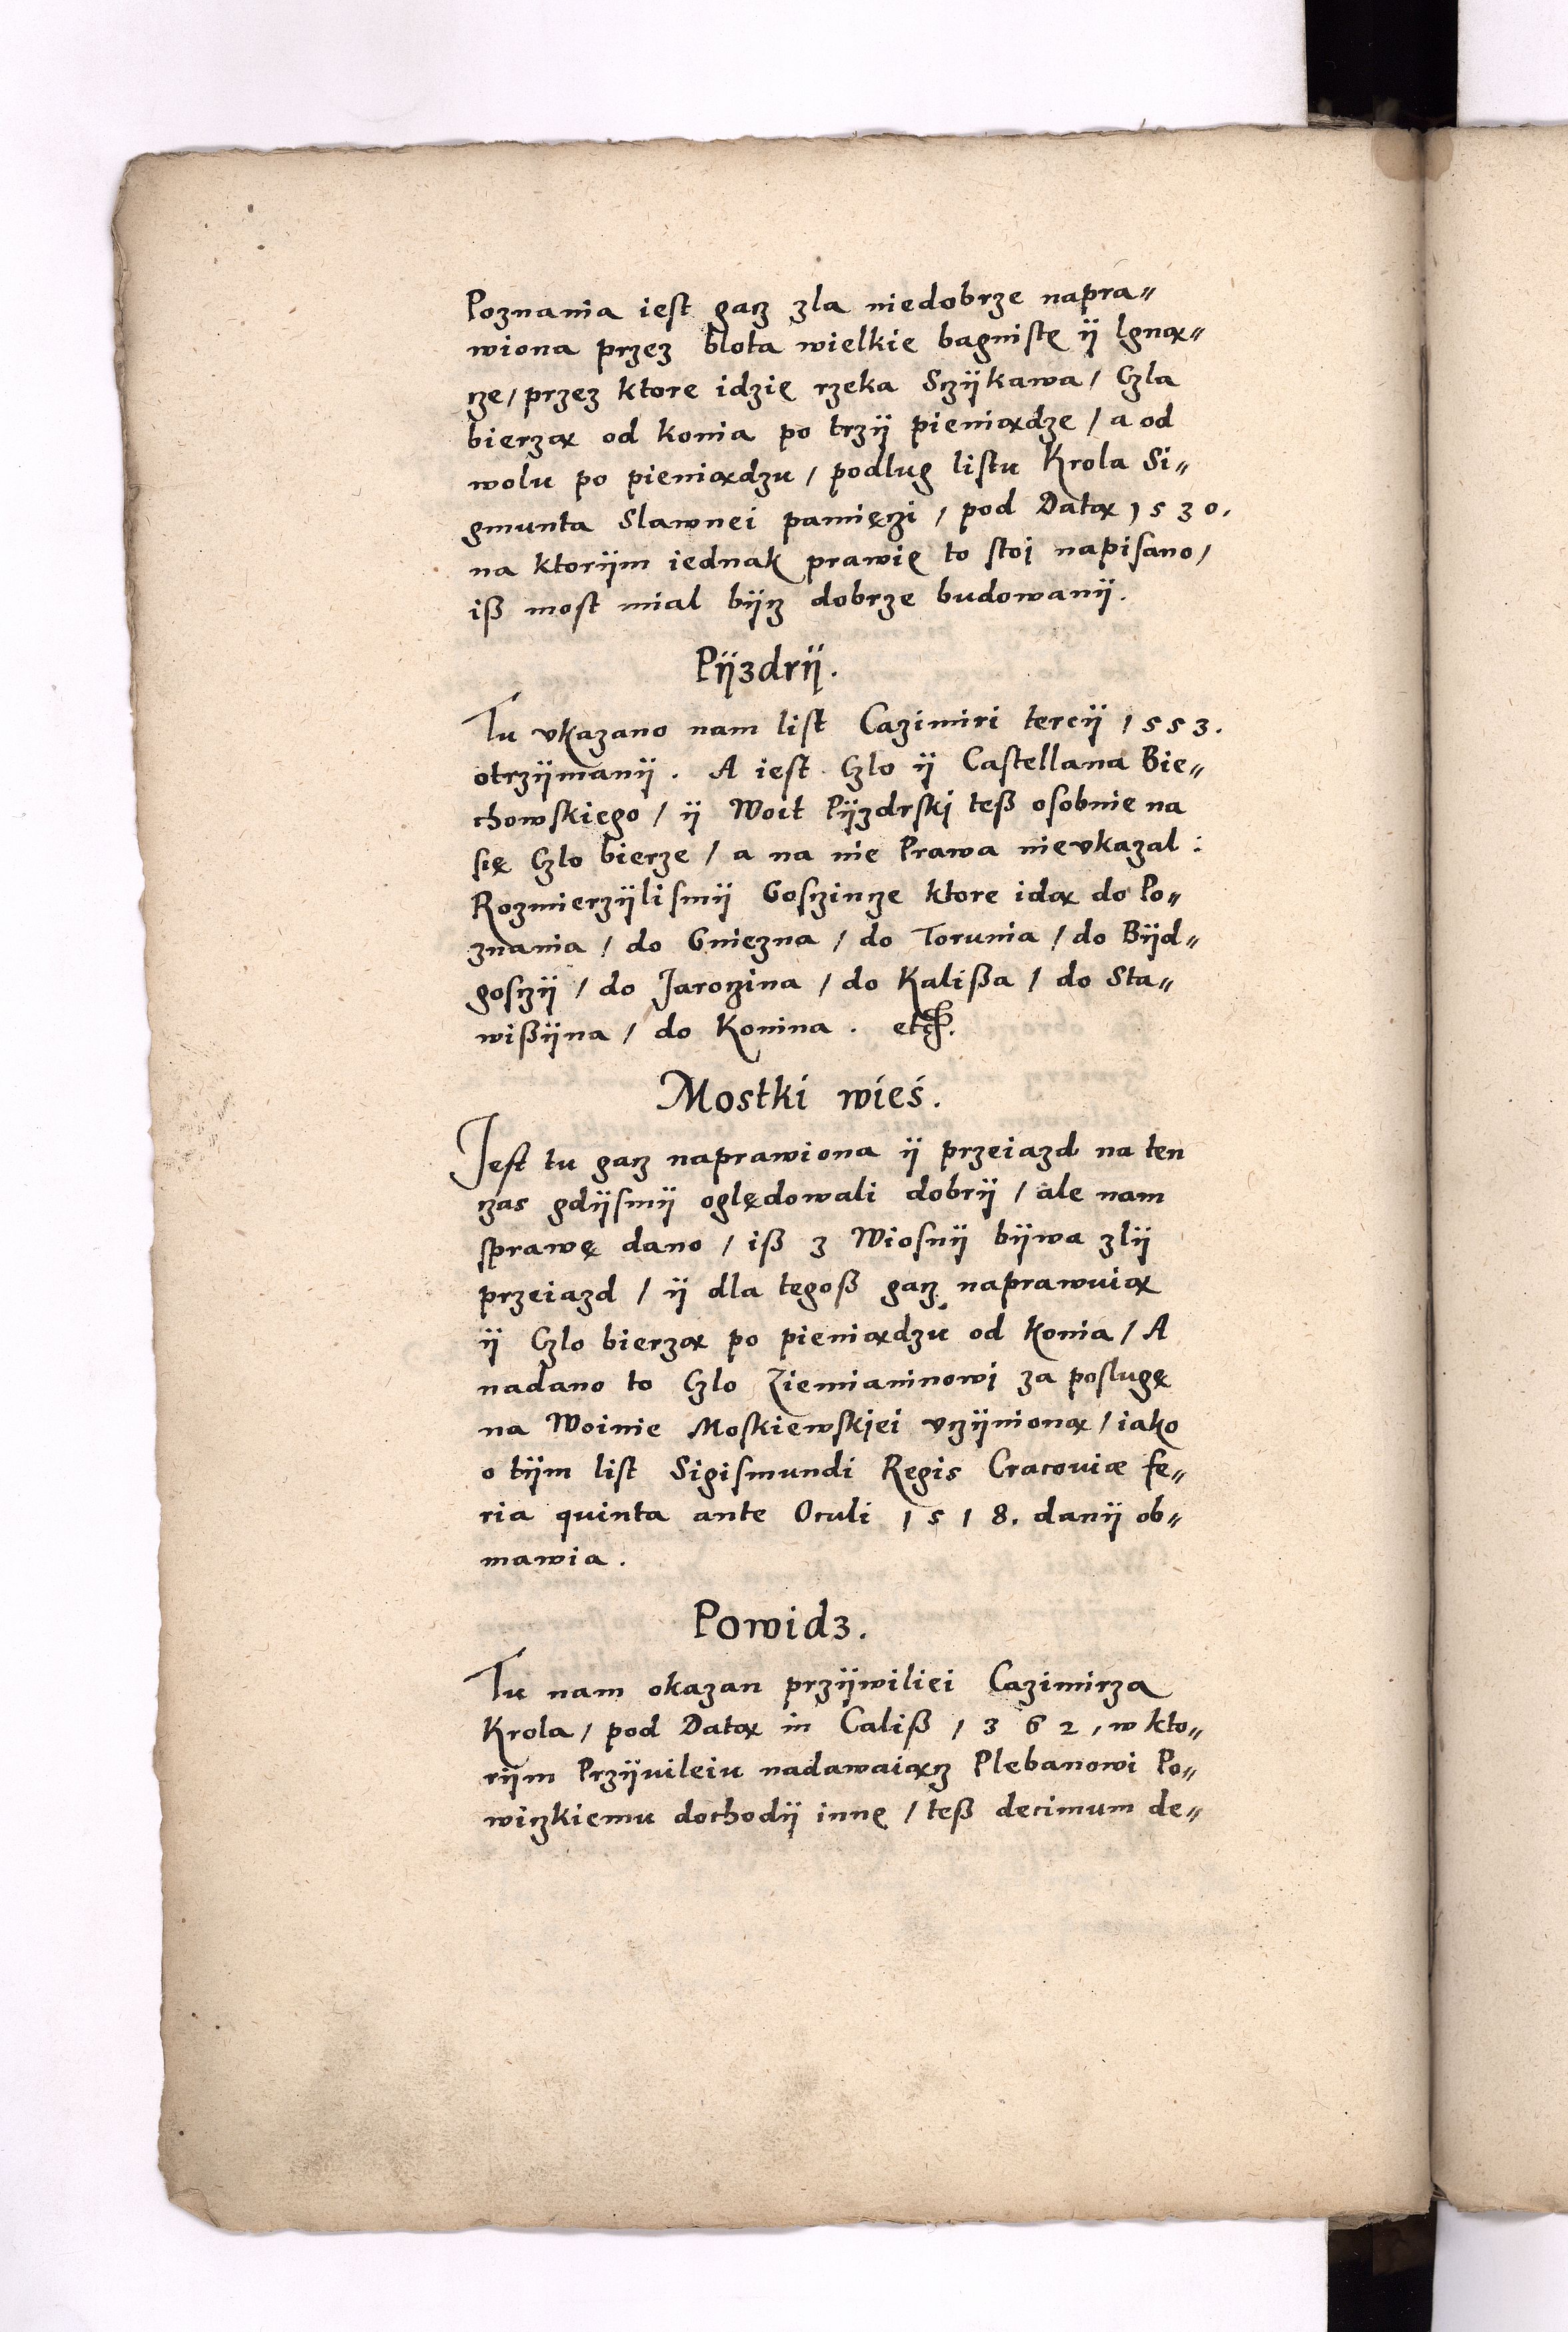 Poznania iest gacz zla niedobrze napra〃
wiona przez blota wielkie bagnistę ÿ lgną〃
cze/ przez ktore idzię rzeka Sczÿkawa / Czla
bierzą od konia po trzÿ pieniądze / a od
wolu po pieniądzu / podlug listu Krola Si〃
gmunta Slawnei pamięczi / pod Datą 1530.
na ktorÿm iednak prawię to stoi napisano /
iß most mial bÿcz dobrze budowanÿ.
Pÿzdrÿ.
Tu vkazano nam list Cazimiri tercÿ 1553.
otrzÿmanÿ. A iest Czlo ÿ Castellana Bie〃
chowskiego / ÿ Woit Pÿzdrski teß osobnie na
się Czlo bierze / a na nie Prawa nievkazal :
Rozmierzÿlismÿ Gosczincze ktore idą do Po〃
znania / do Gniezna / do Torunia / do Bÿd〃
gosczÿ / do Jaroczina / do Kalißa / do Sta〃
wißÿna / do Konina . etc.
Mostki wieś.
Jest tu gacz naprawiona ÿ przeiazd na ten
czas gdÿsmÿ oględowali dobrÿ / ale nam
sprawę dano / iß z Wiosnÿ bÿwa zlÿ
przeiazd / ÿ dla tegoß gacz naprawuią
ÿ Czlo bierzą po pieniądzu od konia / A
nadano to Czlo Ziemianinowi za poslugę
na Woinie Moskiewskiei vczÿnioną / iako
o tÿm list Sigismundi Regis Cracouiæ fe〃
ria quinta ante Oculi 1518. danÿ ob〃
mawia .
Powidz.
Tu nam okazan przÿwiliei Cazimirza
Krola / pod Datą in Caliß 1362, w kto〃
rÿm Przÿuileiu nadawaiącz Plebanowi Po〃
wiczkiemu dochodÿ innę / teß decimum de〃